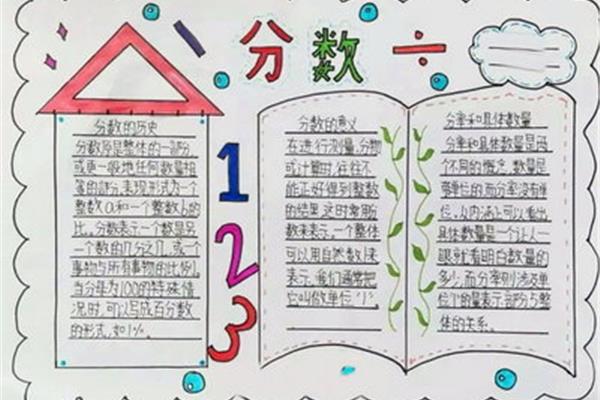 分数 ÷
分数的历史
分数原是整体的一部分,
或更一般地任何数量相
等的部分,表现形式为一个
整数a和一个整数b的
比。分数表示一个数是另
一个数的几分之几,或一个
事物与所有事物的比例。
当分母为100的特殊情
况时,可以写成百分数
的形式,如1%。
1
2
3
分数的意义
在进行测量、分物
或计算时,往往不
能正好得到整数
的结果,这时常用分
数来表示。一个整体
可以用自然数1来
表示,我们通常把
它叫做单位"1"。
分率和具体数量
分率和具体数量是两
个不同的概念,数量是
带单位的而分率没有单
位,从内涵上可以看出,
具体数量是一个让人一
眼就看明白数量的
多少,而分率则涉及单
位1的量表示部分占整
体的关系。